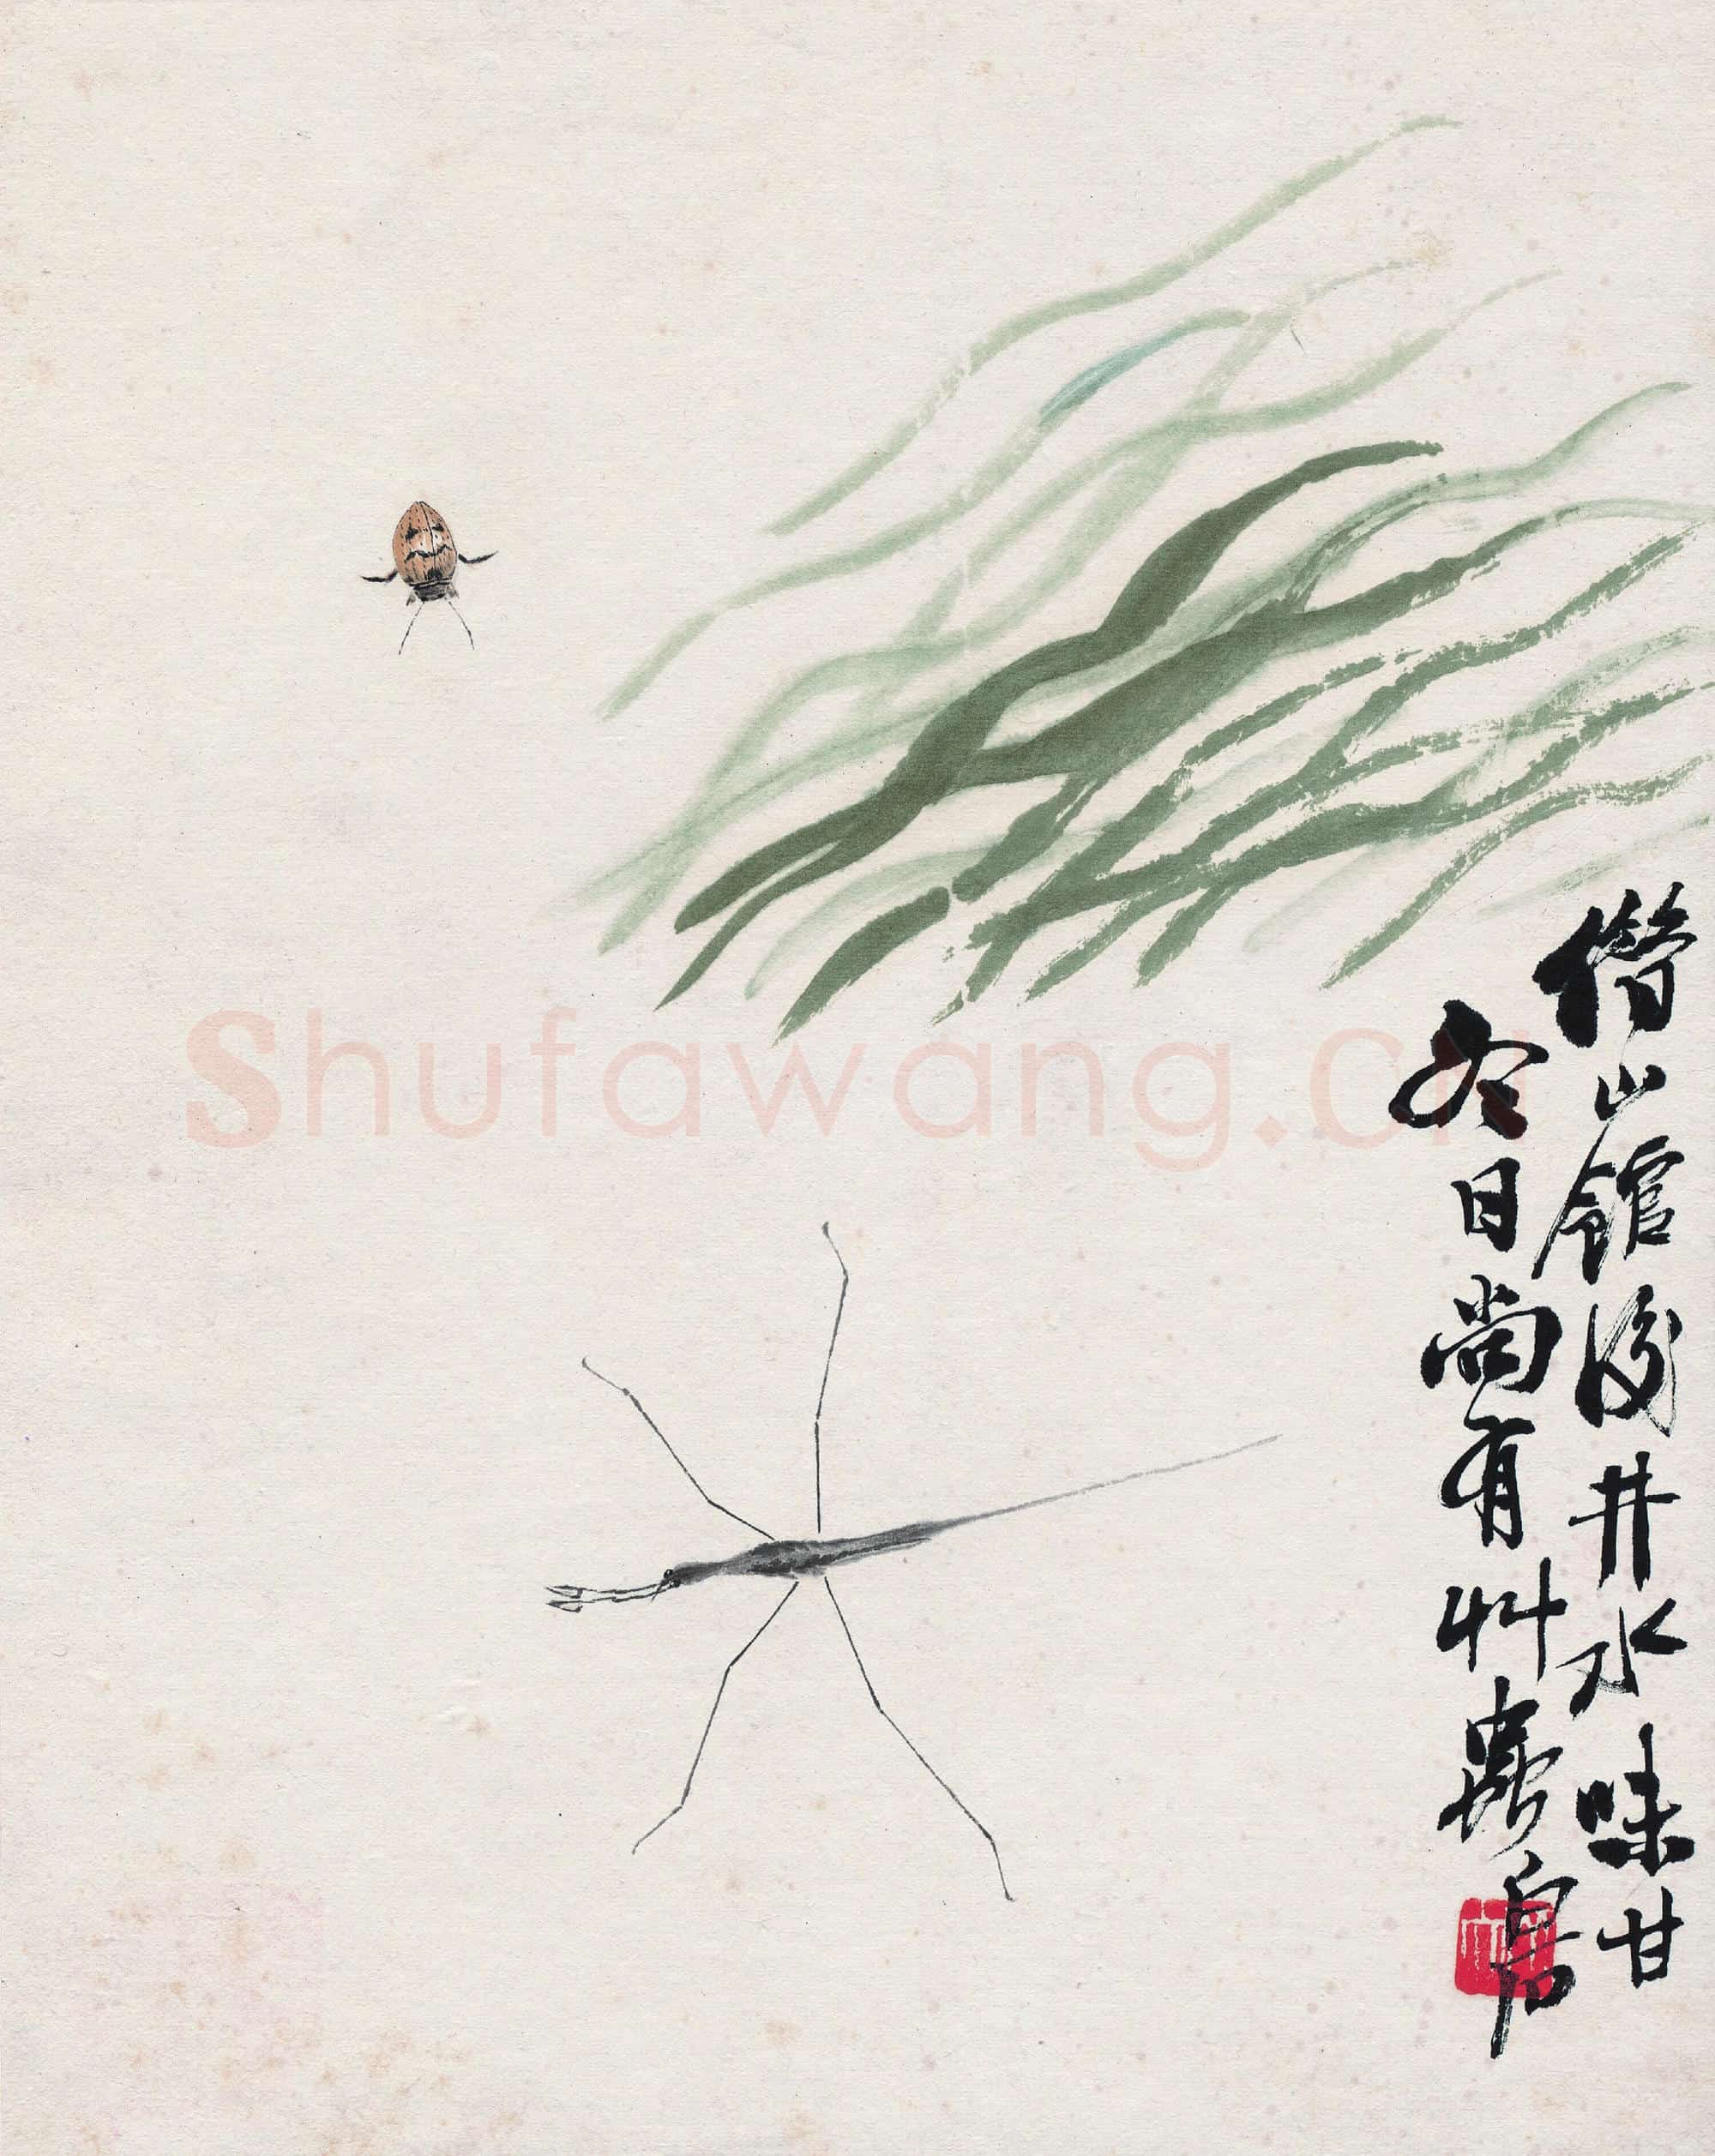 借山館後井水味甘
冬日尚有艸蟲白石
Shufawang.cn